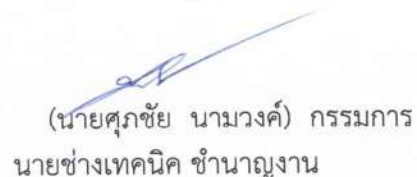 (นายศุภชัย นามวงค์) กรรมการ
นายช่างเทคนิค ชำนาญงาน